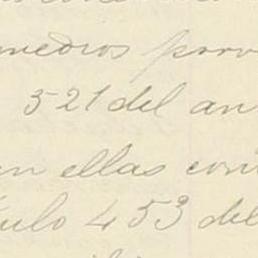 medios prov
521 del an
en ellas cont
culo 453 del